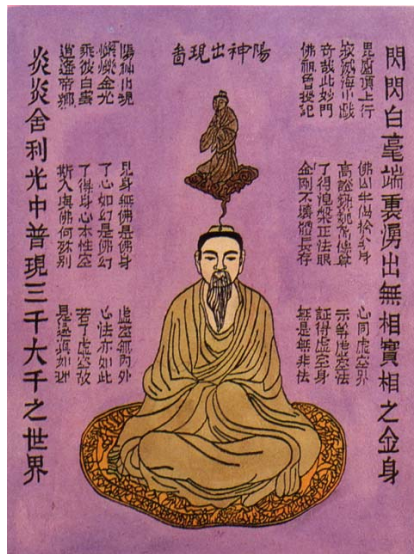 陽神出現啚
閃閃白毫端裏湧出無相實相之金身
毘盧頂上行
寂滅海中戲
奇哉此妙門
佛祖曾授記
佛因半偈捨全身
高
了得涅槃正法眼
金剛不壞體長存
心同虛空界
示等虛空法
証得虛空
無是無非法
陽神出現
金光
乘彼白雲
逍遙帝鄉
見身無佛是佛身
了心如幻是佛幻
了得身心本性空
斯人與佛何殊別
虛空無內外
心法亦如此
若了虛空故
是達真如理
炎炎舍利光中普現三千大千之世界